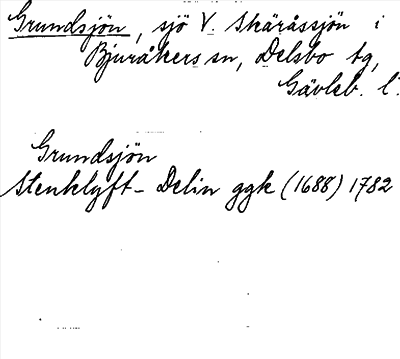 Grundsjön, sjö V. Skäråssjön i
Bjuråkers sn, Delsbo tg,
Gävleb. l.
Grundsjön
Stenklyft - Delin ggk (1688) 1782